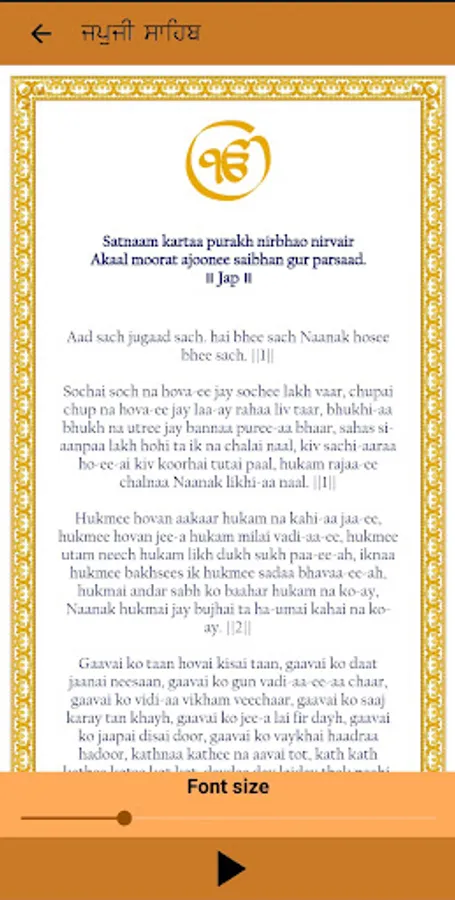 ਜਪੁਜੀ ਸਾਹਿਬ
ੴ
Satnaam kartaa purakh nirbhao nirvair
Akaal moorat ajoonee saibhan gur parsaad.
॥ Jap ॥
Aad sach jugaad sach. hai bhee sach Naanak hosee
bhee sach. ||1||
Sochai soch na hova-ee jay sochee lakh vaar, chupai
chup na hova-ee jay laa-ay rahaa liv taar, bhukhi-aa
bhukh na utree jay bannaa puree-aa bhaar, sahas si-
aanpaa lakh hohi ta ik na chalai naal, kiv sachi-aaraa
ho-ee-ai kiv koorhai tutai paal, hukam rajaa-ee
chalnaa Naanak likhi-aa naal. ||1||
Hukmee hovan aakaar hukam na kahi-aa jaa-ee,
hukmee hovan jee-a hukam milai vadi-aa-ee, hukmee
utam neech hukam likh dukh sukh paa-ee-ah, iknaa
hukmee bakhsees ik hukmee sadaa bhavaa-ee-ah,
hukmai andar sabh ko baahar hukam na ko-ay,
Naanak hukmai jay bujhai ta ha-umai kahai na ko-
ay. ||2||
Gaavai ko taan hovai kisai taan, gaavai ko daat
jaanai neesaan, gaavai ko gun vadi-aa-ee-aa chaar,
gaavai ko vidi-aa vikham veechaar, gaavai ko saaj
karay tan khayh, gaavai ko jee-a lai fir dayh, gaavai
ko jaapai disai door, gaavai ko vaykhai haadraa
hadoor, kathnaa kathee na aavai tot, kath kath
Font size